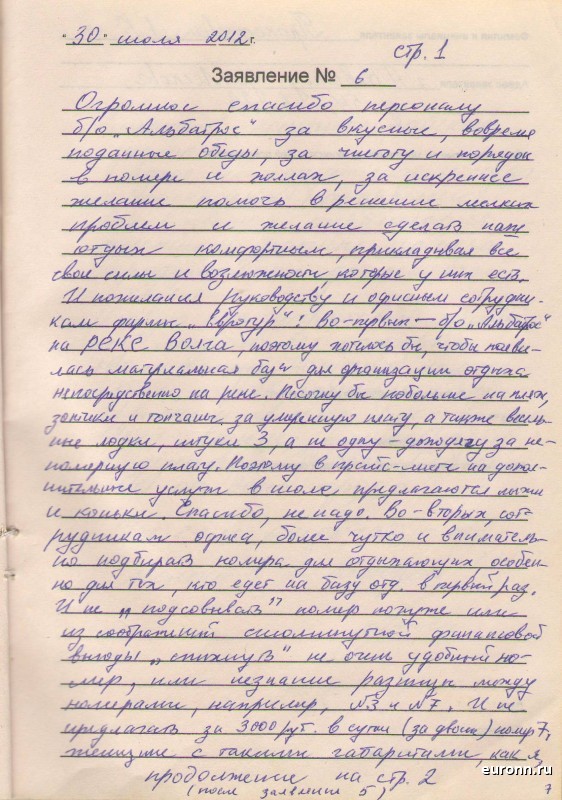 "30" июля 2012г.
стр. 1
Заявление № 6
Огромное спасибо персоналу
б/о „Альбатрос" за вкусные, вовремя
поданные обеды, за чистоту и порядок
в номере и холлах, за искреннее
желание помочь в решении мелких
проблем и желание сделать наш
отдых комфортным, прикладывая все
свои силы и возможности, которые у них есть.
И пожелания руководству и офисным сотрудни-
кам фирмы „Евротур": Во-первых – б/о „Альбатрос"
на РЕКЕ Волга, поэтому хотелось бы, чтобы появи-
лась материальная база для организации отдыха
непосредственно на реке. Песочку бы побольше на пляж,
зонтики и топчаны за умеренную плату, а также
лодки, штуки 3, а не одну – доходягу за не-
померную плату. Поэтому в прайс-листе на допол-
нительные услуги в июле, предлагаются лыжи
и коньки. Спасибо, не надо. Во-вторых, сот-
рудникам офиса, более чутко и вниматель-
но подбирать номера для отдыхающих, особен-
но для тех, кто едет на базу отд. в первый раз.
И не „подсовывать" номер похуже или
из соображений сиюминутной финансовой
выгоды „спихнуть" не очень удобный но-
мер, или незнание разницы между
номерами, например, №3 и №7. И не
предлагать за 3000 руб. в сутки (за двоих) номер 7,
женщине с такими габаритами, как я,
продолжение на стр. 2
(после заявления 5)
7
euronn.ru